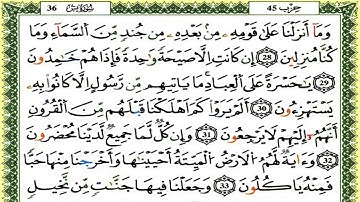 36 سورة يس حزب 45
وَمَا أَنزَلْنَا عَلَىٰ قَوْمِهِ مِنۢ بَعْدِهِ مِن جُندٍ مِّنَ السَّمَاءِ وَمَا
كُنَّا مُنزِلِينَ 28 إِن كَانَتْ إِلَّا صَيْحَةً وَاحِدَةً فَإِذَا هُمْ خَامِدُونَ
29 يَا حَسْرَةً عَلَى الْعِبَادِ مَا يَاتِيهِم مِّن رَّسُولٍ إِلَّا كَانُوا بِهِ
يَسْتَهْزِءُونَ 30 أَلَمْ يَرَوْا كَمْ أَهْلَكْنَا قَبْلَهُم مِّنَ الْقُرُونِ
أَنَّهُمْ إِلَيْهِمْ لَا يَرْجِعُونَ 31 وَإِن كُلٌّ لَّمَا جَمِيعٌ لَّدَيْنَا مُحْضَرُونَ
32 وَءَايَةٌ لَّهُمُ الْأَرْضُ الْمَيِّتَةُ أَحْيَيْنَاهَا وَأَخْرَجْنَا مِنْهَا حَبًّا
فَمِنْهُ يَاكُلُونَ 33 وَجَعَلْنَا فِيهَا جَنَّاتٍ مِّن نَّخِيلٍ